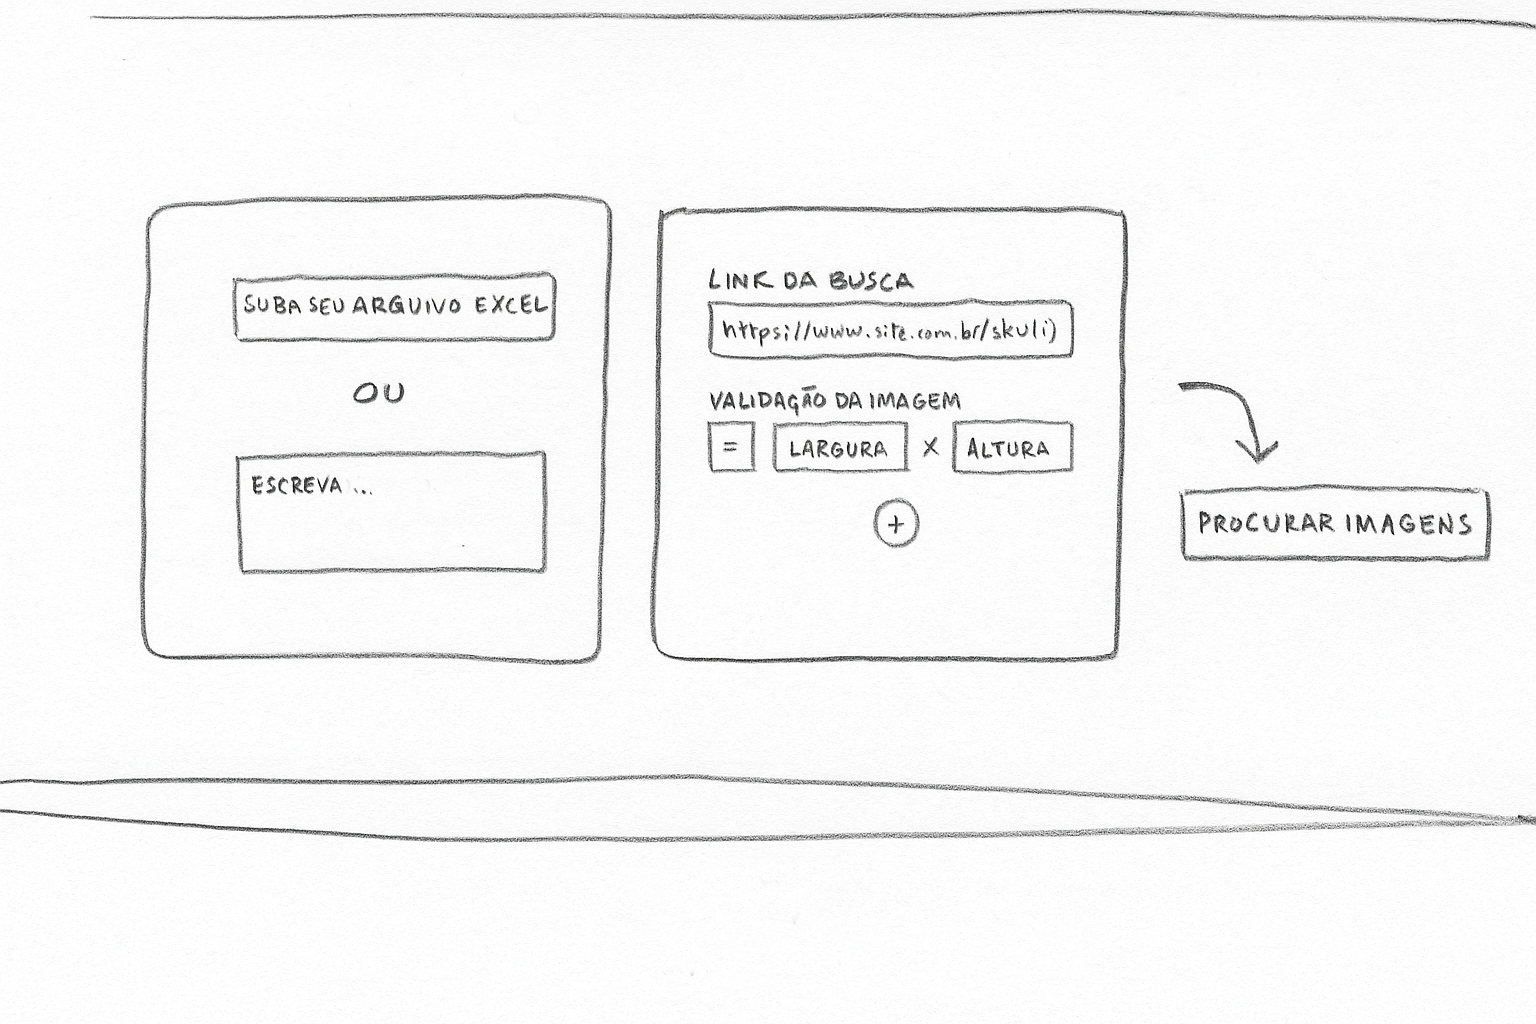 SUBA SEU ARQUIVO EXCEL
OU
ESCREVA ...
LINK DA BUSCA
https://www.site.com.br/skuli)
VALIDAÇÃO DA IMAGEM
= LARGURA X ALTURA
+
PROCURAR IMAGENS